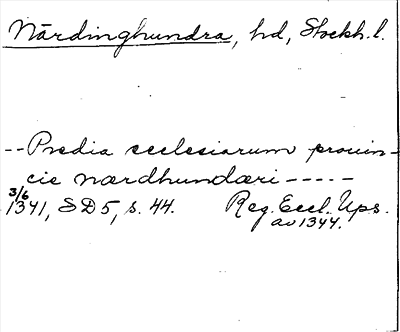 Närdinghundra, hd, Stockh. l.
-- Predia ecclesiarum prouin-
cie nærdhundæri -----
3/6
1341, SD 5, s. 44. Reg. Eccl. Ups.
av 1344.